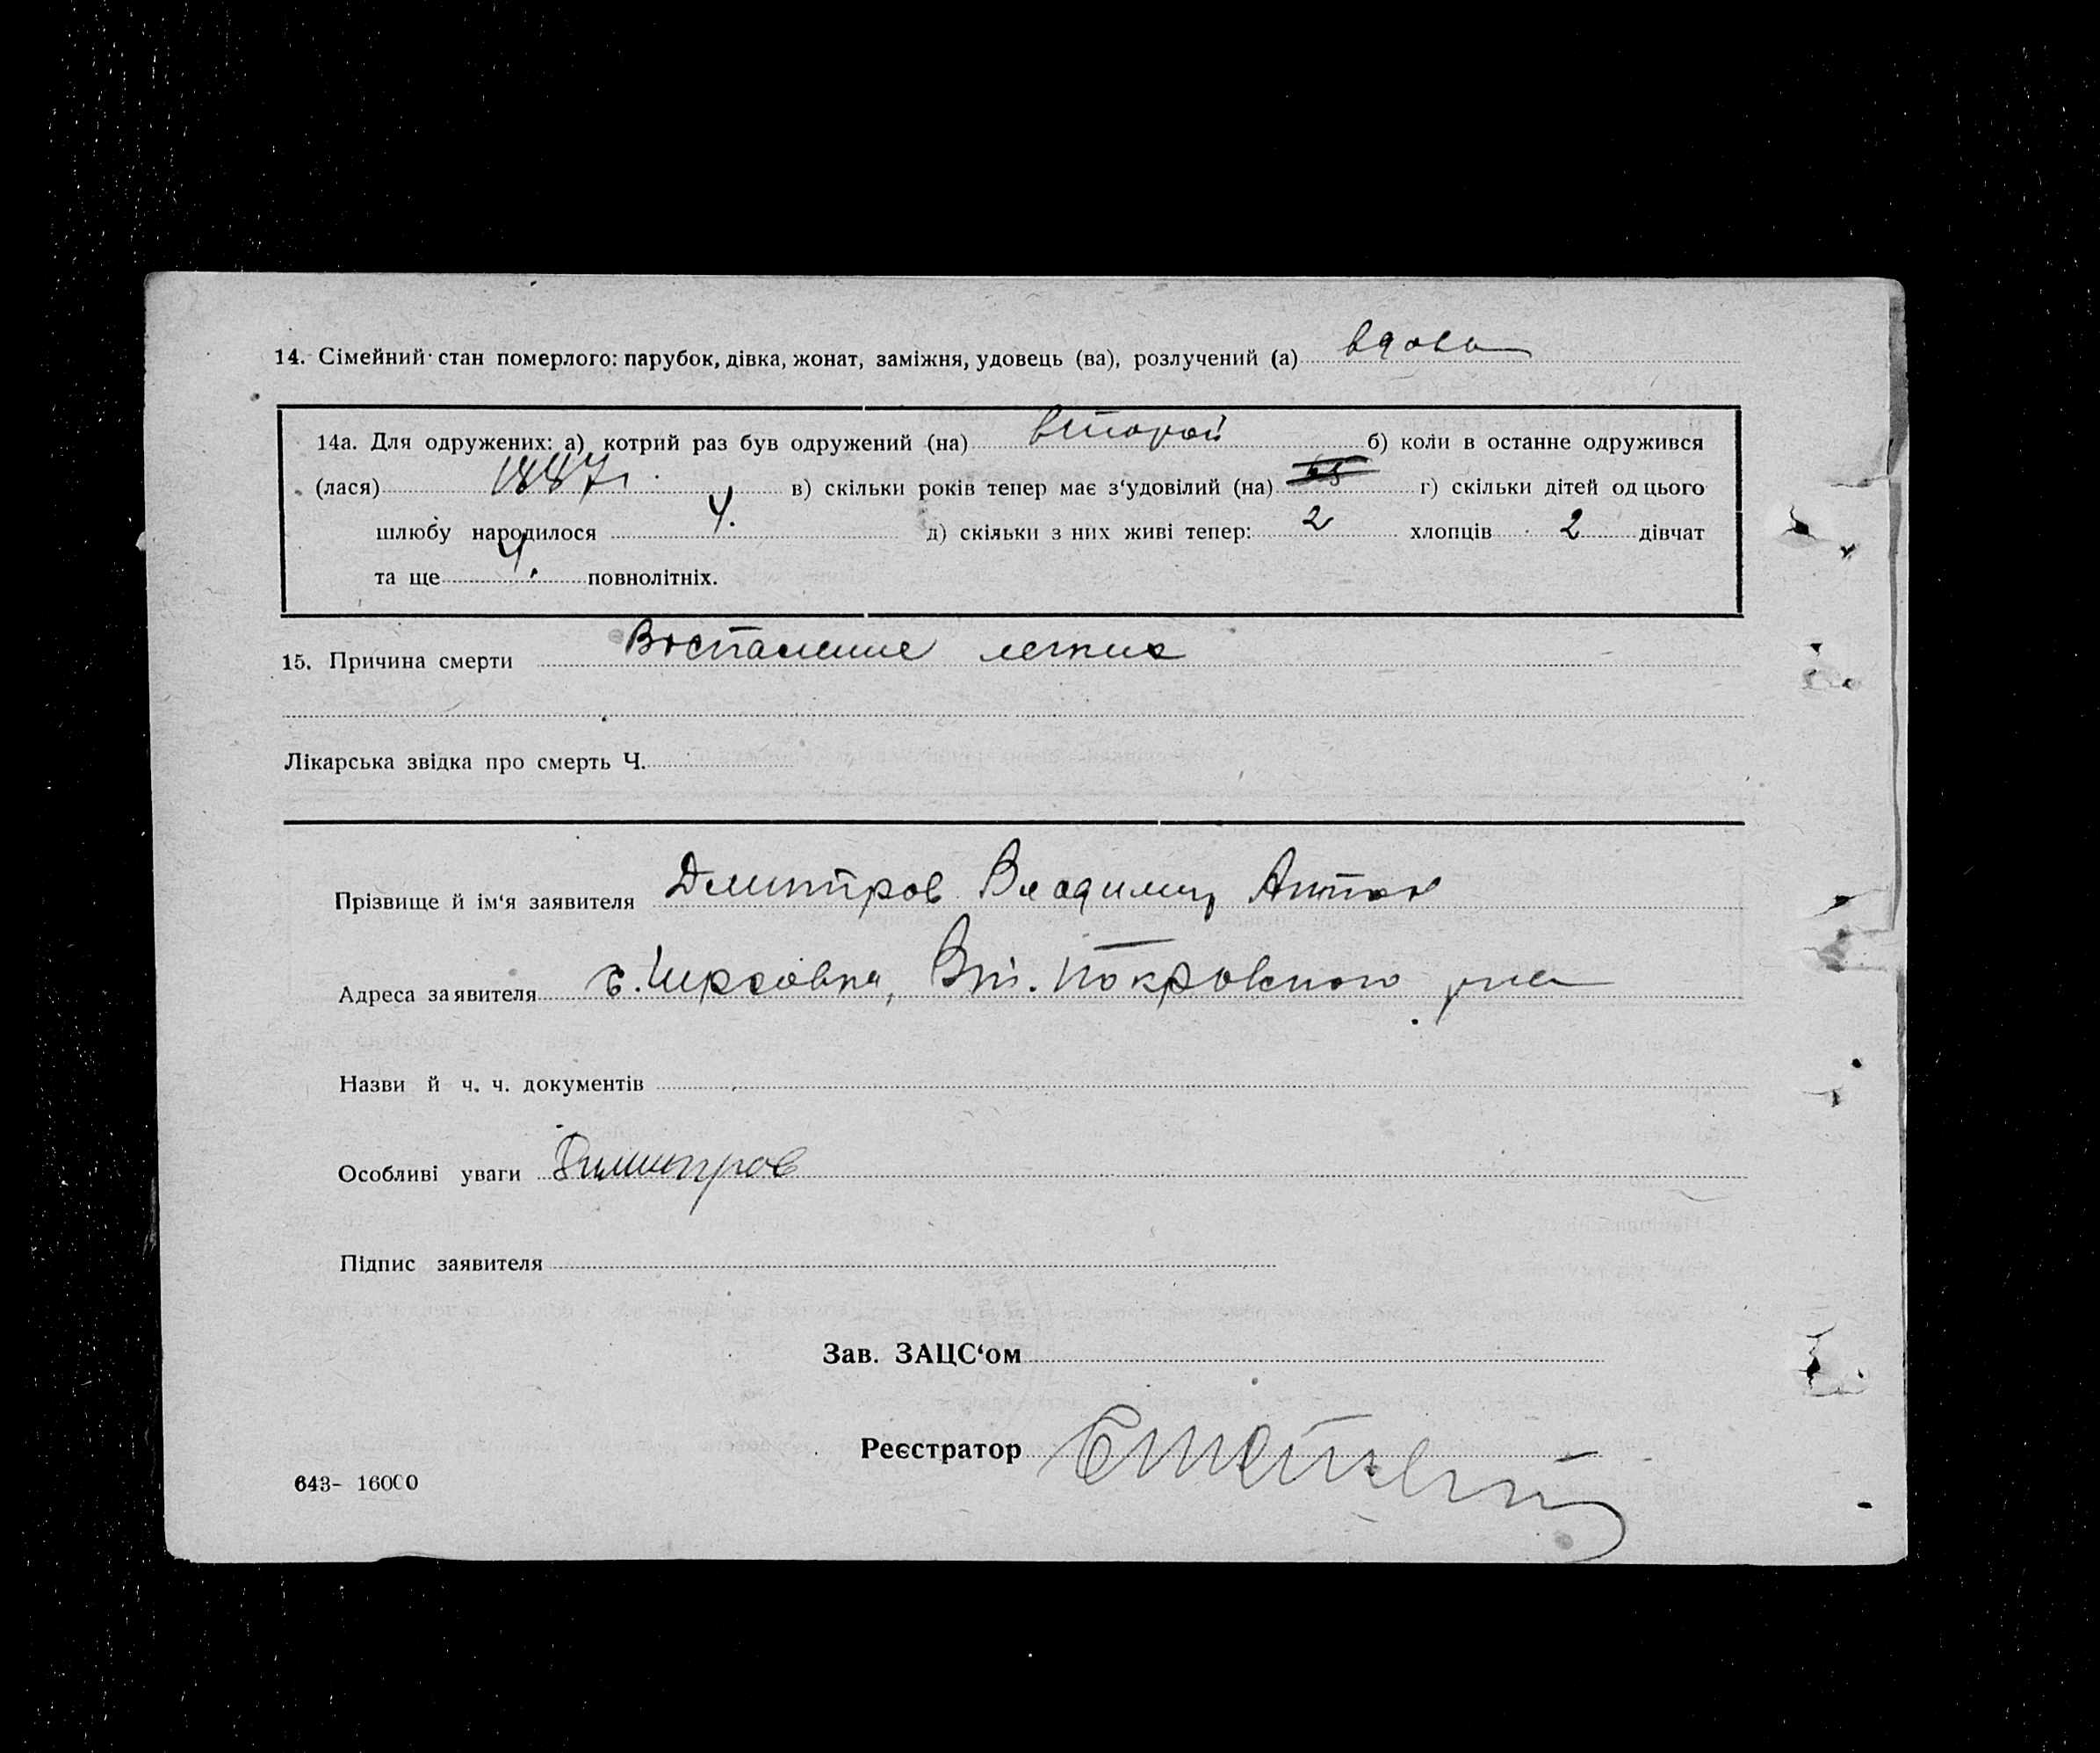 14. Сімейний стан померлого: парубок, дівка, жонат, заміжня, удовець (ва), розлучений (а) вдова
14а. Для одружених: а) котрий раз був одружений (на) второй б) коли в останне одружився
(лася) 1887 г. в) скільки років тепер має з‘удовілий (на) 65 г) скільки дітей од цього
шлюбу народилося 4. д) скільки з них живі тепер: 2 хлопців 2 дівчат
та ще 4. повнолітніх.
15. Причина смерти Воспаление легких
Лікарська звідка про смерть Ч.
Прізвище й ім‘я заявителя Дмитров Владимир Антон
Адреса заявителя Покровского
Назви й ч. ч. документів
Особливі уваги Димитров
Підпис заявителя
Зав. ЗАЦС‘ом
Реєстратор
643- 16000